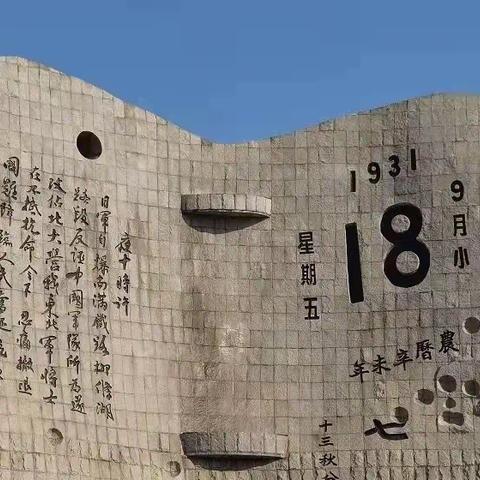 1931
9月小
18
星期五
農曆辛未年
七
十三秋
夜十時許
日軍自爆南滿鐵路柳條湖
路段反誣中國軍隊所為遂
攻佔北大營我東北軍將士
在不抵抗命令下忍痛撤退
國難降臨人民奮起